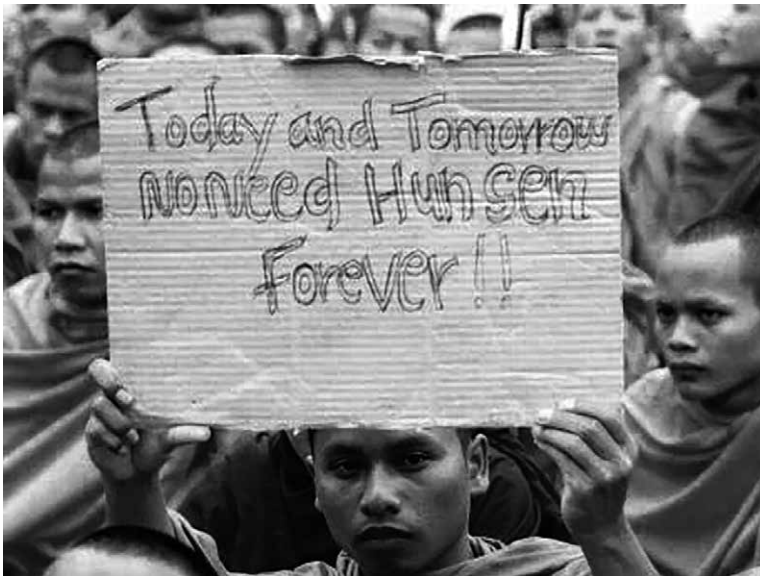 Today and Tomorrow
No Need Hun Sen
Forever!!